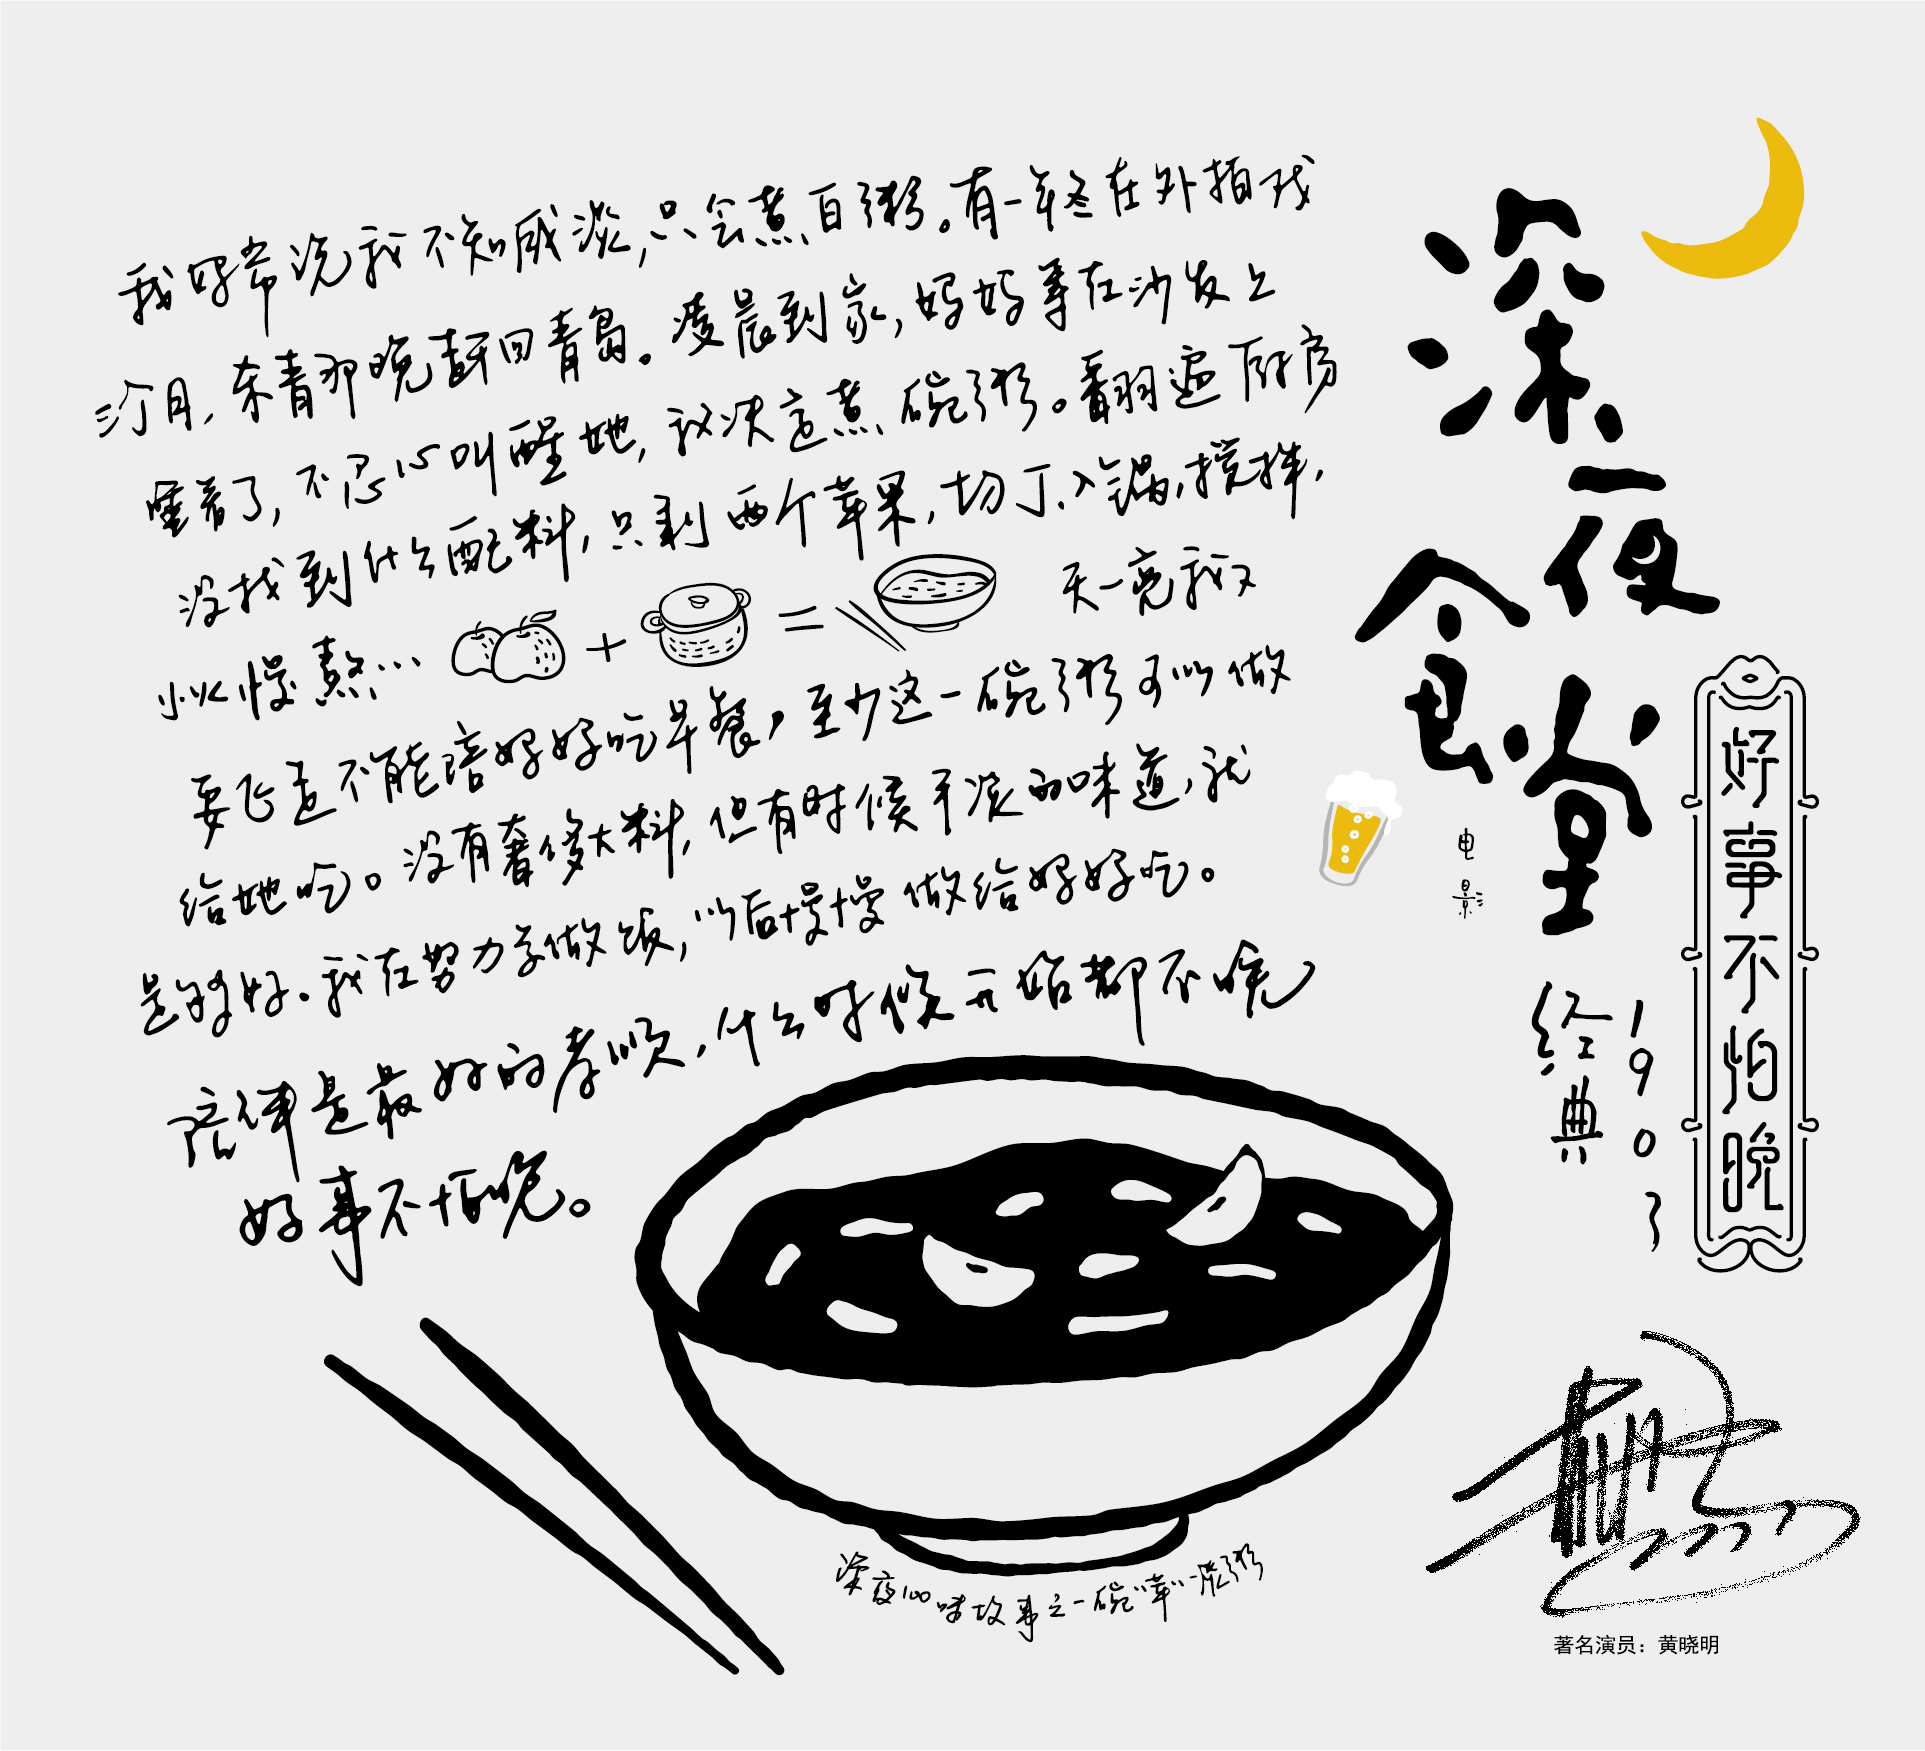 我妈常说我不知咸淡，只会煮白粥。有一年冬在外拍戏
三个月，杀青那晚赶回青岛。凌晨到家，妈妈等在沙发上
睡着了，不忍心叫醒她，我决定煮碗粥。翻遍厨房
没找到什么配料，只剩两个苹果，切丁、入锅，搅拌，
小火慢熬…
+
=
天一亮我又
要飞走不能陪妈妈吃早餐，至少这一碗粥可以做
给她吃。没有奢侈大料，但有时候平淡的味道，就
是够好。我在努力学做饭，以后慢慢做给妈妈吃。
陪伴是最好的孝顺，什么时候开始都不晚
好事不怕晚。
深夜食堂
电影
经典1903
好事不怕晚
深夜100味故事之一碗“苹”一苹粥
著名演员：黄晓明